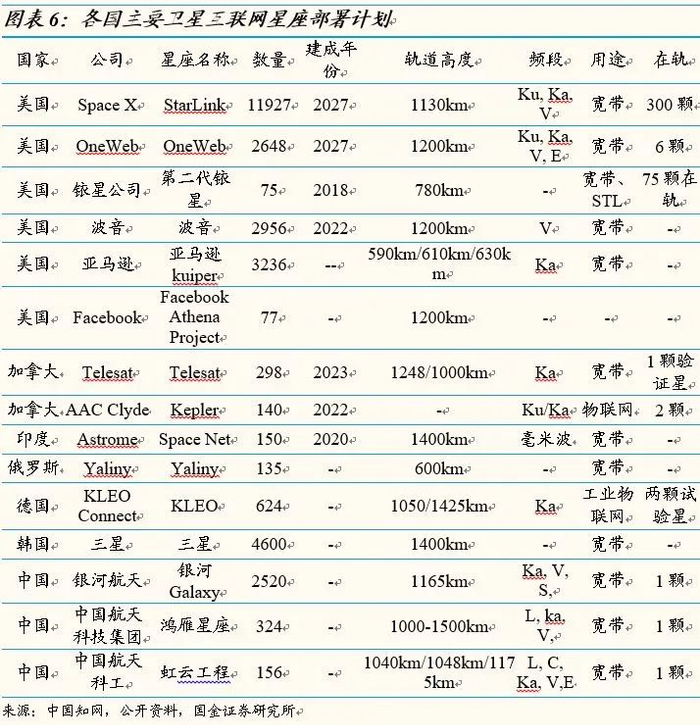 图表 6：各国主要卫星互联网星座部署计划
国家 公司 星座名称 数量 建成年份 轨道高度 频段 用途 在轨
美国 Space X StarLink 11927 2027 1130km Ku, Ka, V 宽带 300 颗
美国 OneWeb OneWeb 2648 2027 1200km Ku, Ka, V, E 宽带 6 颗
美国 铱星公司 第二代铱星 75 2018 780km - 宽带、STL 75 颗在轨
美国 波音 波音 2956 2022 1200km V 宽带 -
美国 亚马逊 亚马逊 kuiper 3236 -- 590km/610km/630km Ka 宽带 -
美国 Facebook Facebook Athena Project 77 - 1200km - - -
加拿大 Telesat Telesat 298 2023 1248/1000km Ka 宽带 1 颗验证星
加拿大 AAC Clyde Kepler 140 2022 - Ku/Ka 物联网 2 颗
印度 Astrome Space Net 150 2020 1400km 毫米波 宽带 -
俄罗斯 Yaliny Yaliny 135 - 600km - 宽带 -
德国 KLEO Connect KLEO 624 - 1050/1425km Ka 工业物联网 两颗试验星
韩国 三星 三星 4600 - 1400km - 宽带 -
中国 银河航天 银河 Galaxy 2520 - 1165km Ka, V, S, 宽带 1 颗
中国 中国航天科技集团 鸿雁星座 324 - 1000-1500km L, ka, V, 宽带 1 颗
中国 中国航天科工 虹云工程 156 - 1040km/1048km/1175km L, C, Ka, V,E 宽带 1 颗
来源：中国知网，公开资料，国金证券研究所